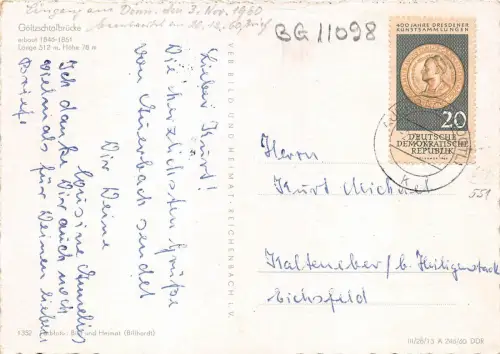 Eingang am Dienst., den 3. Nov. 1960
beantwortet am 20.12.60, Brief
Göltzschtalbrücke
erbaut 1845-1851
Länge 512 m, Höhe 78 m
BG 11098
400 JAHRE DRESDENER
KUNSTSAMMLUNGEN
20
DEUTSCHE
DEMOKRATISCHE
REPUBLIK
551
Lieber Kurt!
Die herzlichsten Grüße
von Auerbach sendet
Dir Deine
Cousine Annelies
Ich danke Dir auch noch
vielmals für Deinen lieben
Brief.
VEB BILD UND HEIMAT · REICHENBACH I. V.
Herrn
Kurt Michael
Kalteneber / b. Heiligenstadt
Eichsfeld
Farbfoto: Bild und Heimat (Billhardt)
III/26/13 A 240/60 DDR